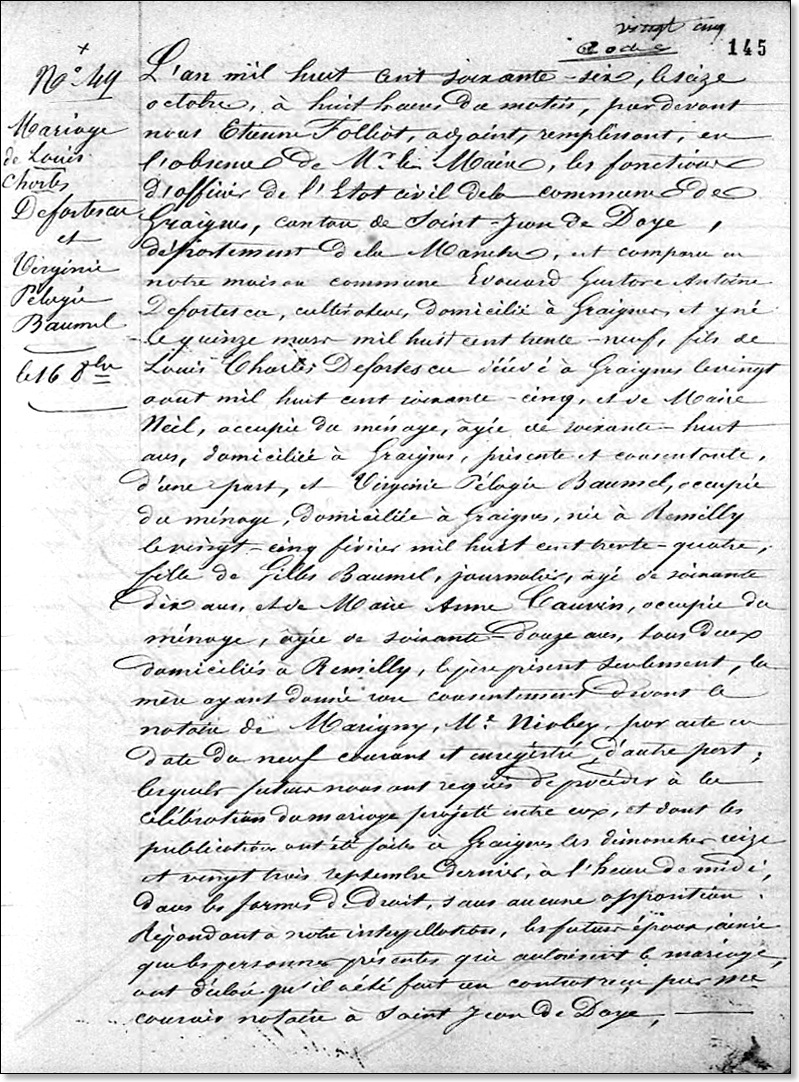 vingt cinq
145
N° 49
Mariage
de Louis
Charles
Defortescu
et
Virginie
Pélagie
Baumel
le 16 8bre
L'an mil huit cent soixante-six, le seize
octobre, à huit heures du matin, par devant
nous Etienne Folliot, adjoint, remplissant, en
l'absence de Mr le Maire, les fonctions
d'officier de l'Etat civil de la commune de
Graignes, canton de Saint-Jean de Daye,
département de la Manche, est comparu en
notre maison commune Edouard Gustave Antoine
Defortescu, cultivateur, domicilié à Graignes, et y né
le quinze mars mil huit cent trente-neuf, fils de
Louis Charles Defortescu décédé à Graignes le vingt
août mil huit cent soixante-cinq, et de Marie
Néel, occupée du ménage, agée de soixante-huit
ans, domiciliée à Graignes, présente et consentante,
d'une part, et Virginie Pélagie Baumel, occupée
du ménage, domiciliée à Graignes, née à Remilly
le vingt-cinq février mil huit cent trente-quatre,
fille de Gilles Baumel, journalier, agé de soixante
dix ans, et de Marie Anne Cauvin, occupée du
ménage, agée de soixante-douze ans, tous deux
domiciliés à Remilly, le père présent seulement, la
mère ayant donné son consentement devant le
notaire de Marigny, Me Niobey, par acte en
date du neuf courant et enregistré, d'autre part;
lesquels futurs nous ont requis de procéder à la
célébration du mariage projeté entre eux, et dont les
publications ont été faites à Graignes les dimanches seize
et vingt trois septembre dernier, à l'heure de midi,
dans les formes de droit, sans aucune opposition.
Répondant à notre interpellation, les futurs époux, ainsi
que les personnes présentes qui autorisent le mariage,
ont déclaré qu'il a été fait un contrat reçu par me
notaire à Saint Jean de Daye,